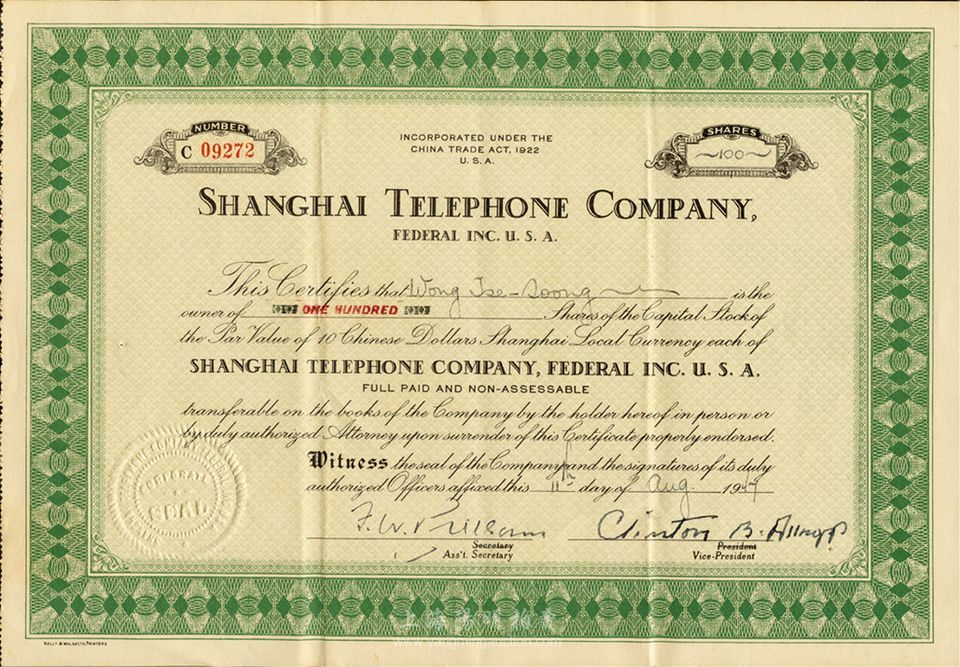 NUMBER
C 09272
INCORPORATED UNDER THE
CHINA TRADE ACT, 1922
U. S. A.
SHARES
100
SHANGHAI TELEPHONE COMPANY,
FEDERAL INC. U. S. A.
This Certifies that Wong Tse-Soong is the
owner of ONE HUNDRED Shares of the Capital Stock of
the Par Value of 10 Chinese Dollars Shanghai Local Currency each of
SHANGHAI TELEPHONE COMPANY, FEDERAL INC. U. S. A.
FULL PAID AND NON-ASSESSABLE
transferable on the books of the Company by the holder hereof in person or
by duly authorized Attorney upon surrender of this Certificate properly endorsed.
Witness the seal of the Company and the signatures of its duly
authorized Officers affixed this 11th day of Aug. 1947
CORPORATE
SEAL
F. W.
Clinton B.
Secretary
Ass't. Secretary
President
Vice-President
KELLY & WALSH, LTD., PRINTERS
上海陽明拍賣
www.yangmingauction.com